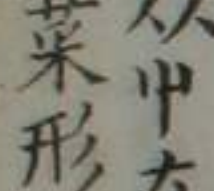 从屮
菜形